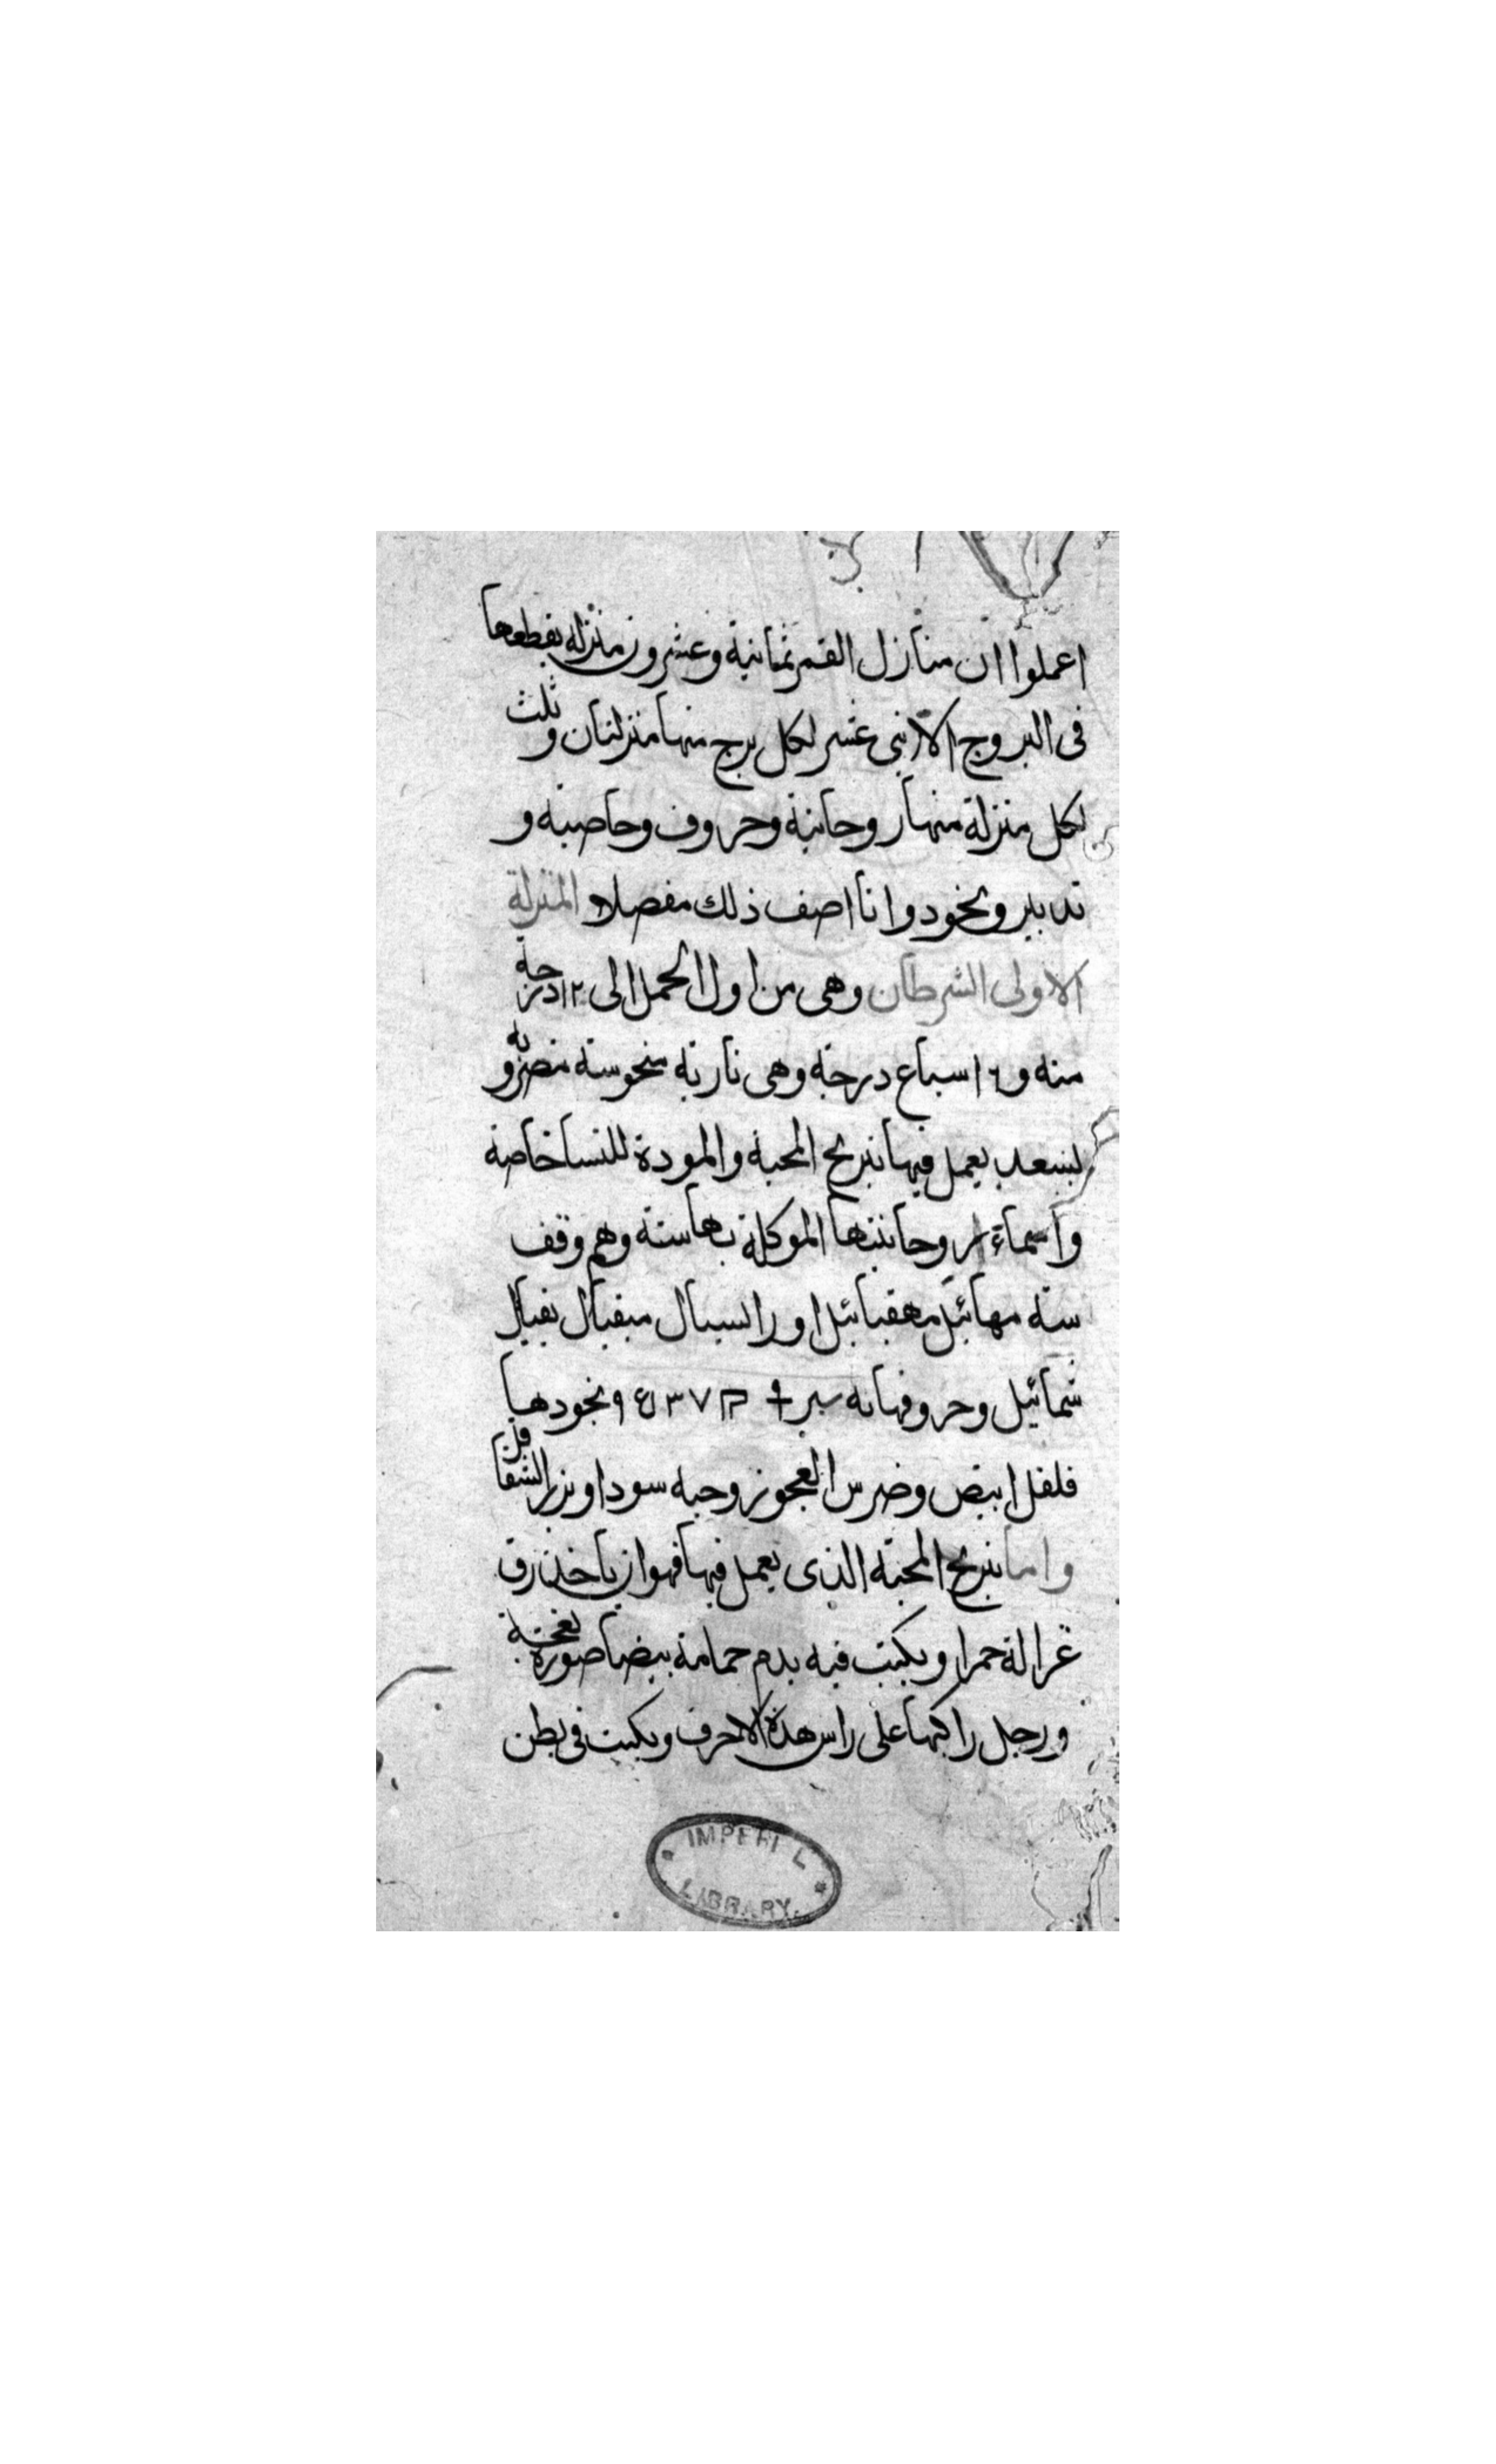 اعملوا ان منازل القمر ثمانية وعشرون منزله يقطعها
فى البروج الاثنى عشر لكل برج منها منزلتان وثلث
لكل منزلة منها روحانية وحروف وخاصية و
تدبير وبخور وانا اصف ذلك مفصلا المنزلة
الاولى الشرطان وهى من اول الحمل الى ١٢ درجة
منه و٦ اسباع درجة وهى نارية منحوسته
بسعد يعمل فيها نيرنج المحبة والمودة للنسا خاصة
واسماء روحانيتها الموكلة بها ستة وهم وقف
سته مهائيل
شمائيل وحروفها وبخودها
فلفل ابيض وضرس العجوز وحبه سودا وبزر الشقا
واما نيرنج المحبة الذى يعمل فيها فهو ان ياخذ رق
غزالة حمرا ويكتب فيه بدم حمامة بيضا صورة نعجة
ورجل راكبها على راس هذه الاحرف ويكتب فى بطن
IMPERI L
LIBRARY.